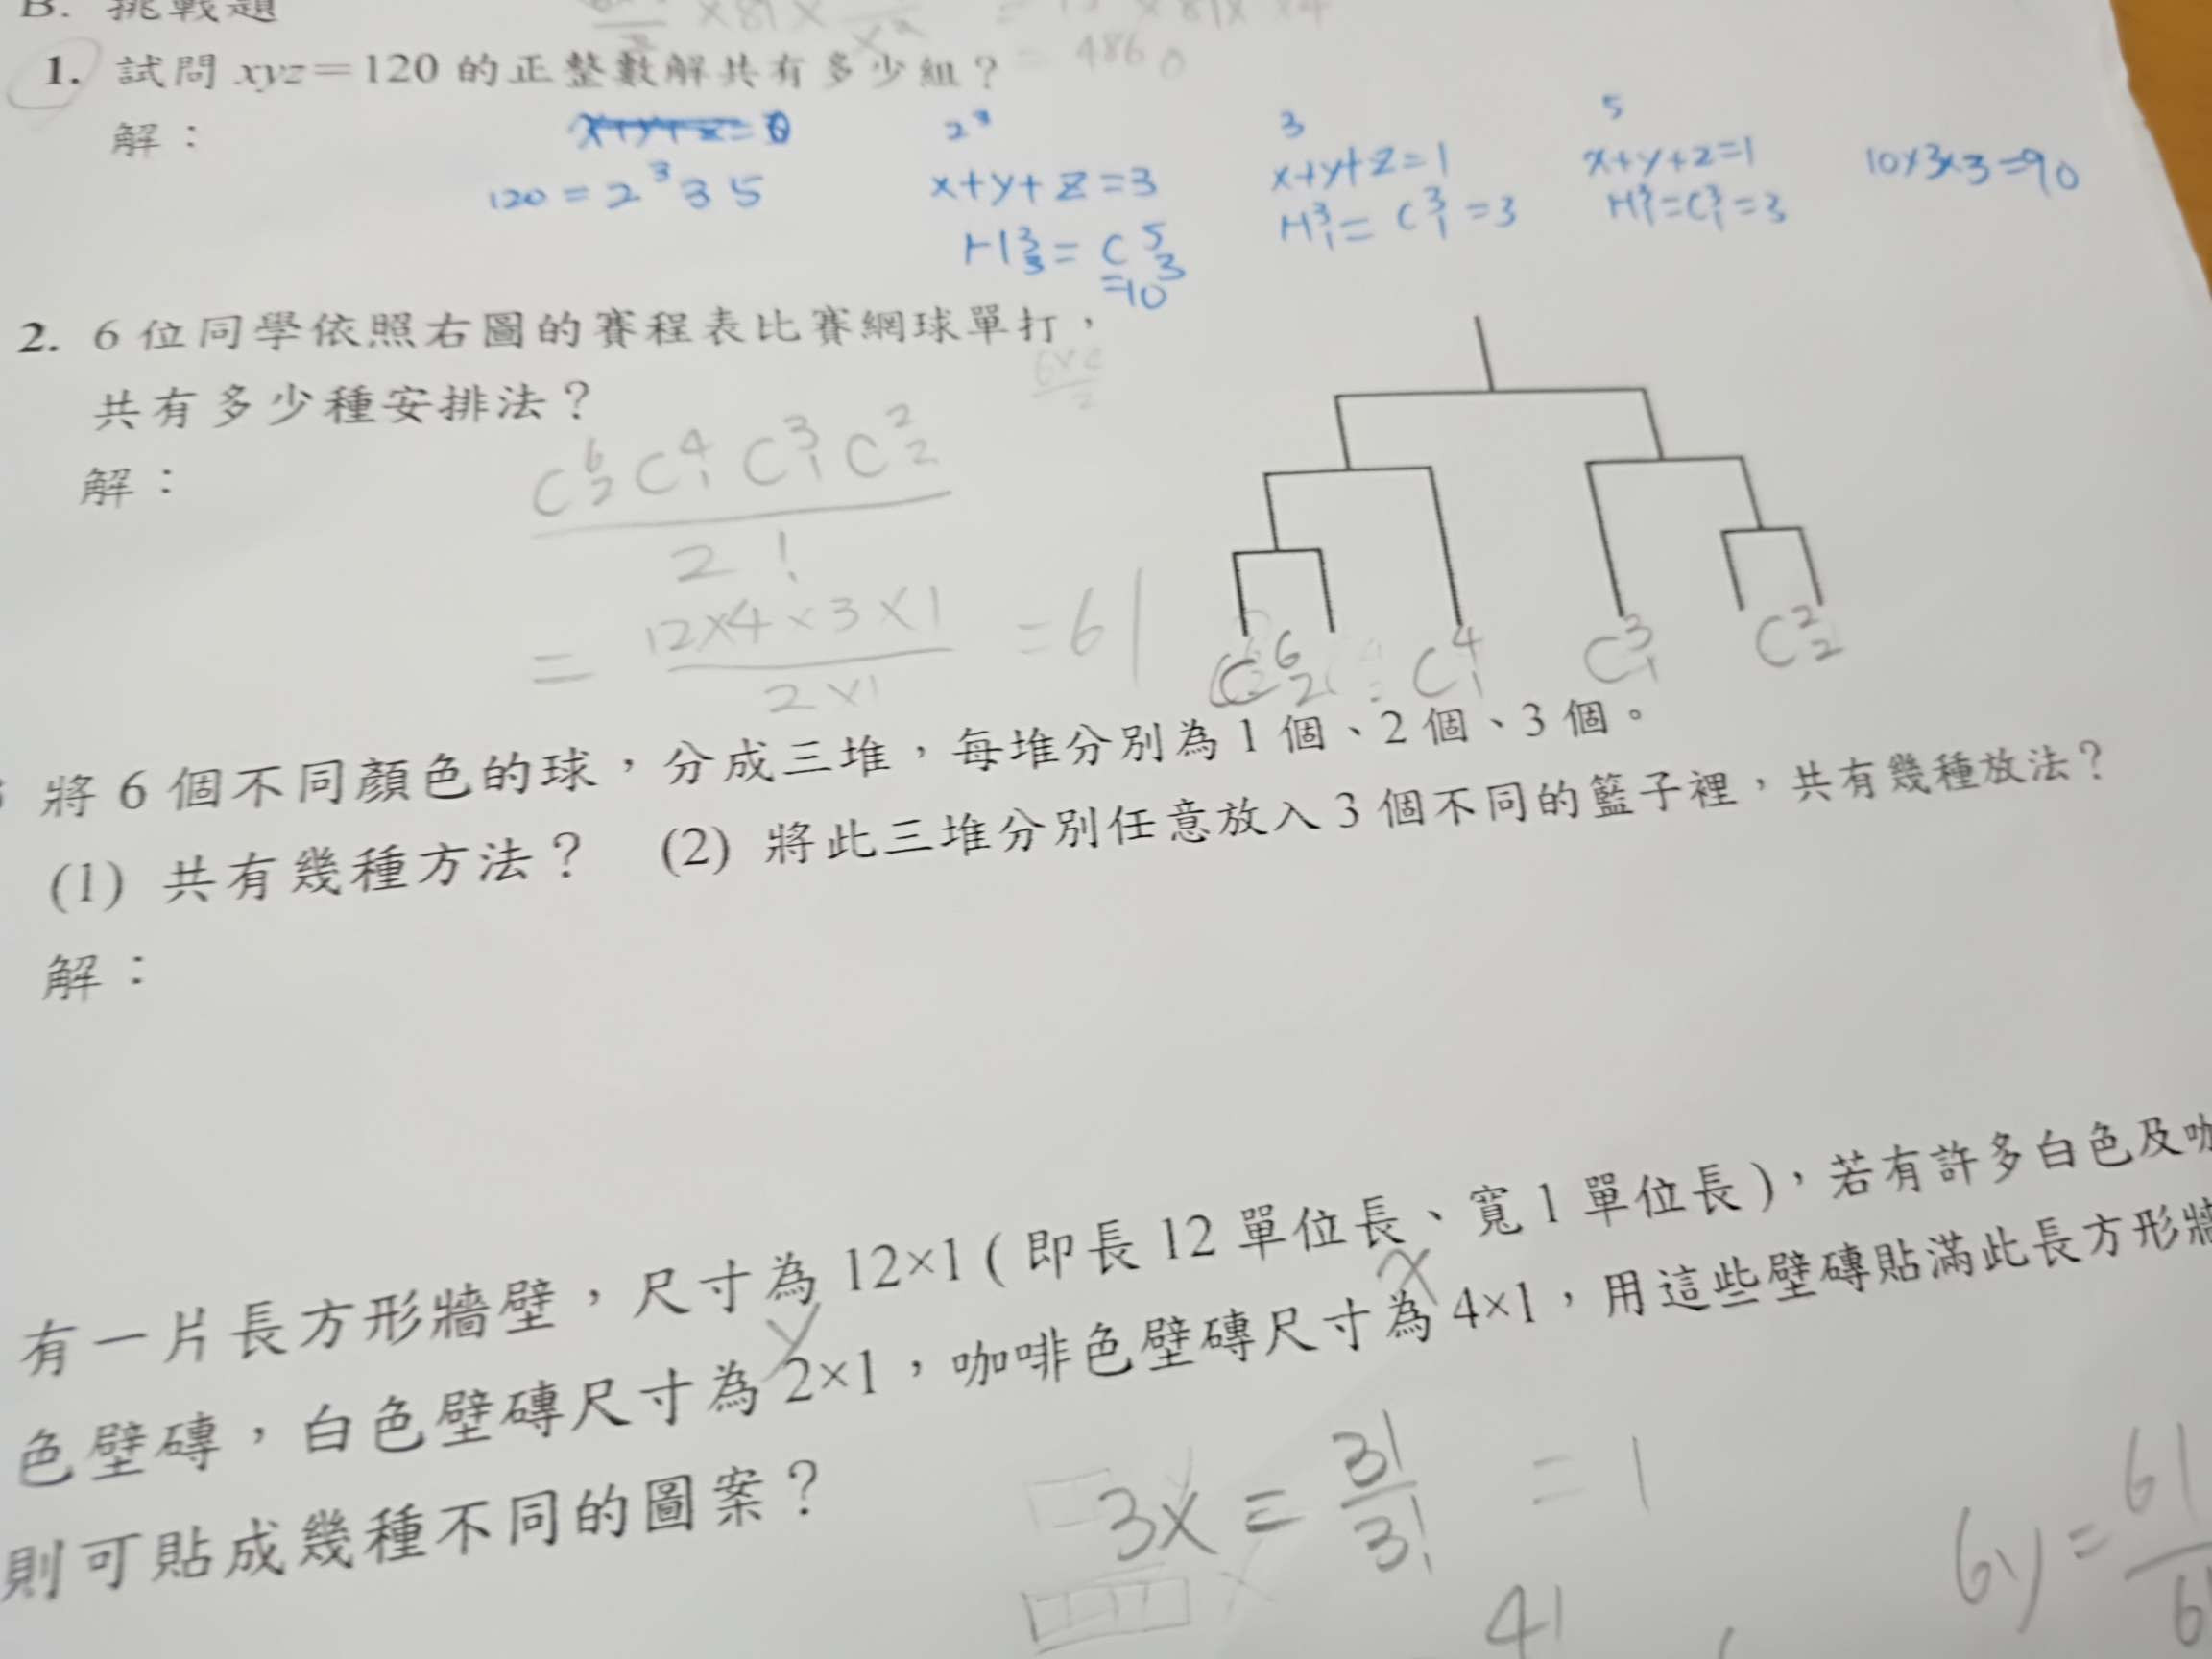 B. 挑戰題
= 4860
1. 試問 xyz=120 的正整數解共有多少組？
解：
x+y+z=
120 = 2³ 3 5
2³
x+y+z=3
H³₃= C⁵₃
=10
3
x+y+z=1
H³₁= C³₁ =3
5
x+y+z=1
H³₁=C³₁=3
10×3×3=90
2. 6 位同學依照右圖的賽程表比賽網球單打，
共有多少種安排法？
解：
C⁶₂ C⁴₁ C³₁ C²₂
2!
= 12×4×3×1 = 61
2×1
C⁶₂ C⁴₁ C³₁ C²₂
將 6 個不同顏色的球，分成三堆，每堆分別為 1 個、2 個、3 個。
(1) 共有幾種方法？ (2) 將此三堆分別任意放入 3 個不同的籃子裡，共有幾種放法？
解：
有一片長方形牆壁，尺寸為 12×1 ( 即長 12 單位長、寬 1 單位長 )，若有許多白色及咖
y x
色壁磚，白色壁磚尺寸為 2×1，咖啡色壁磚尺寸為 4×1，用這些壁磚貼滿此長方形牆
則可貼成幾種不同的圖案？
3x = 3!/3! = 1
6y = 6!/6!
4!